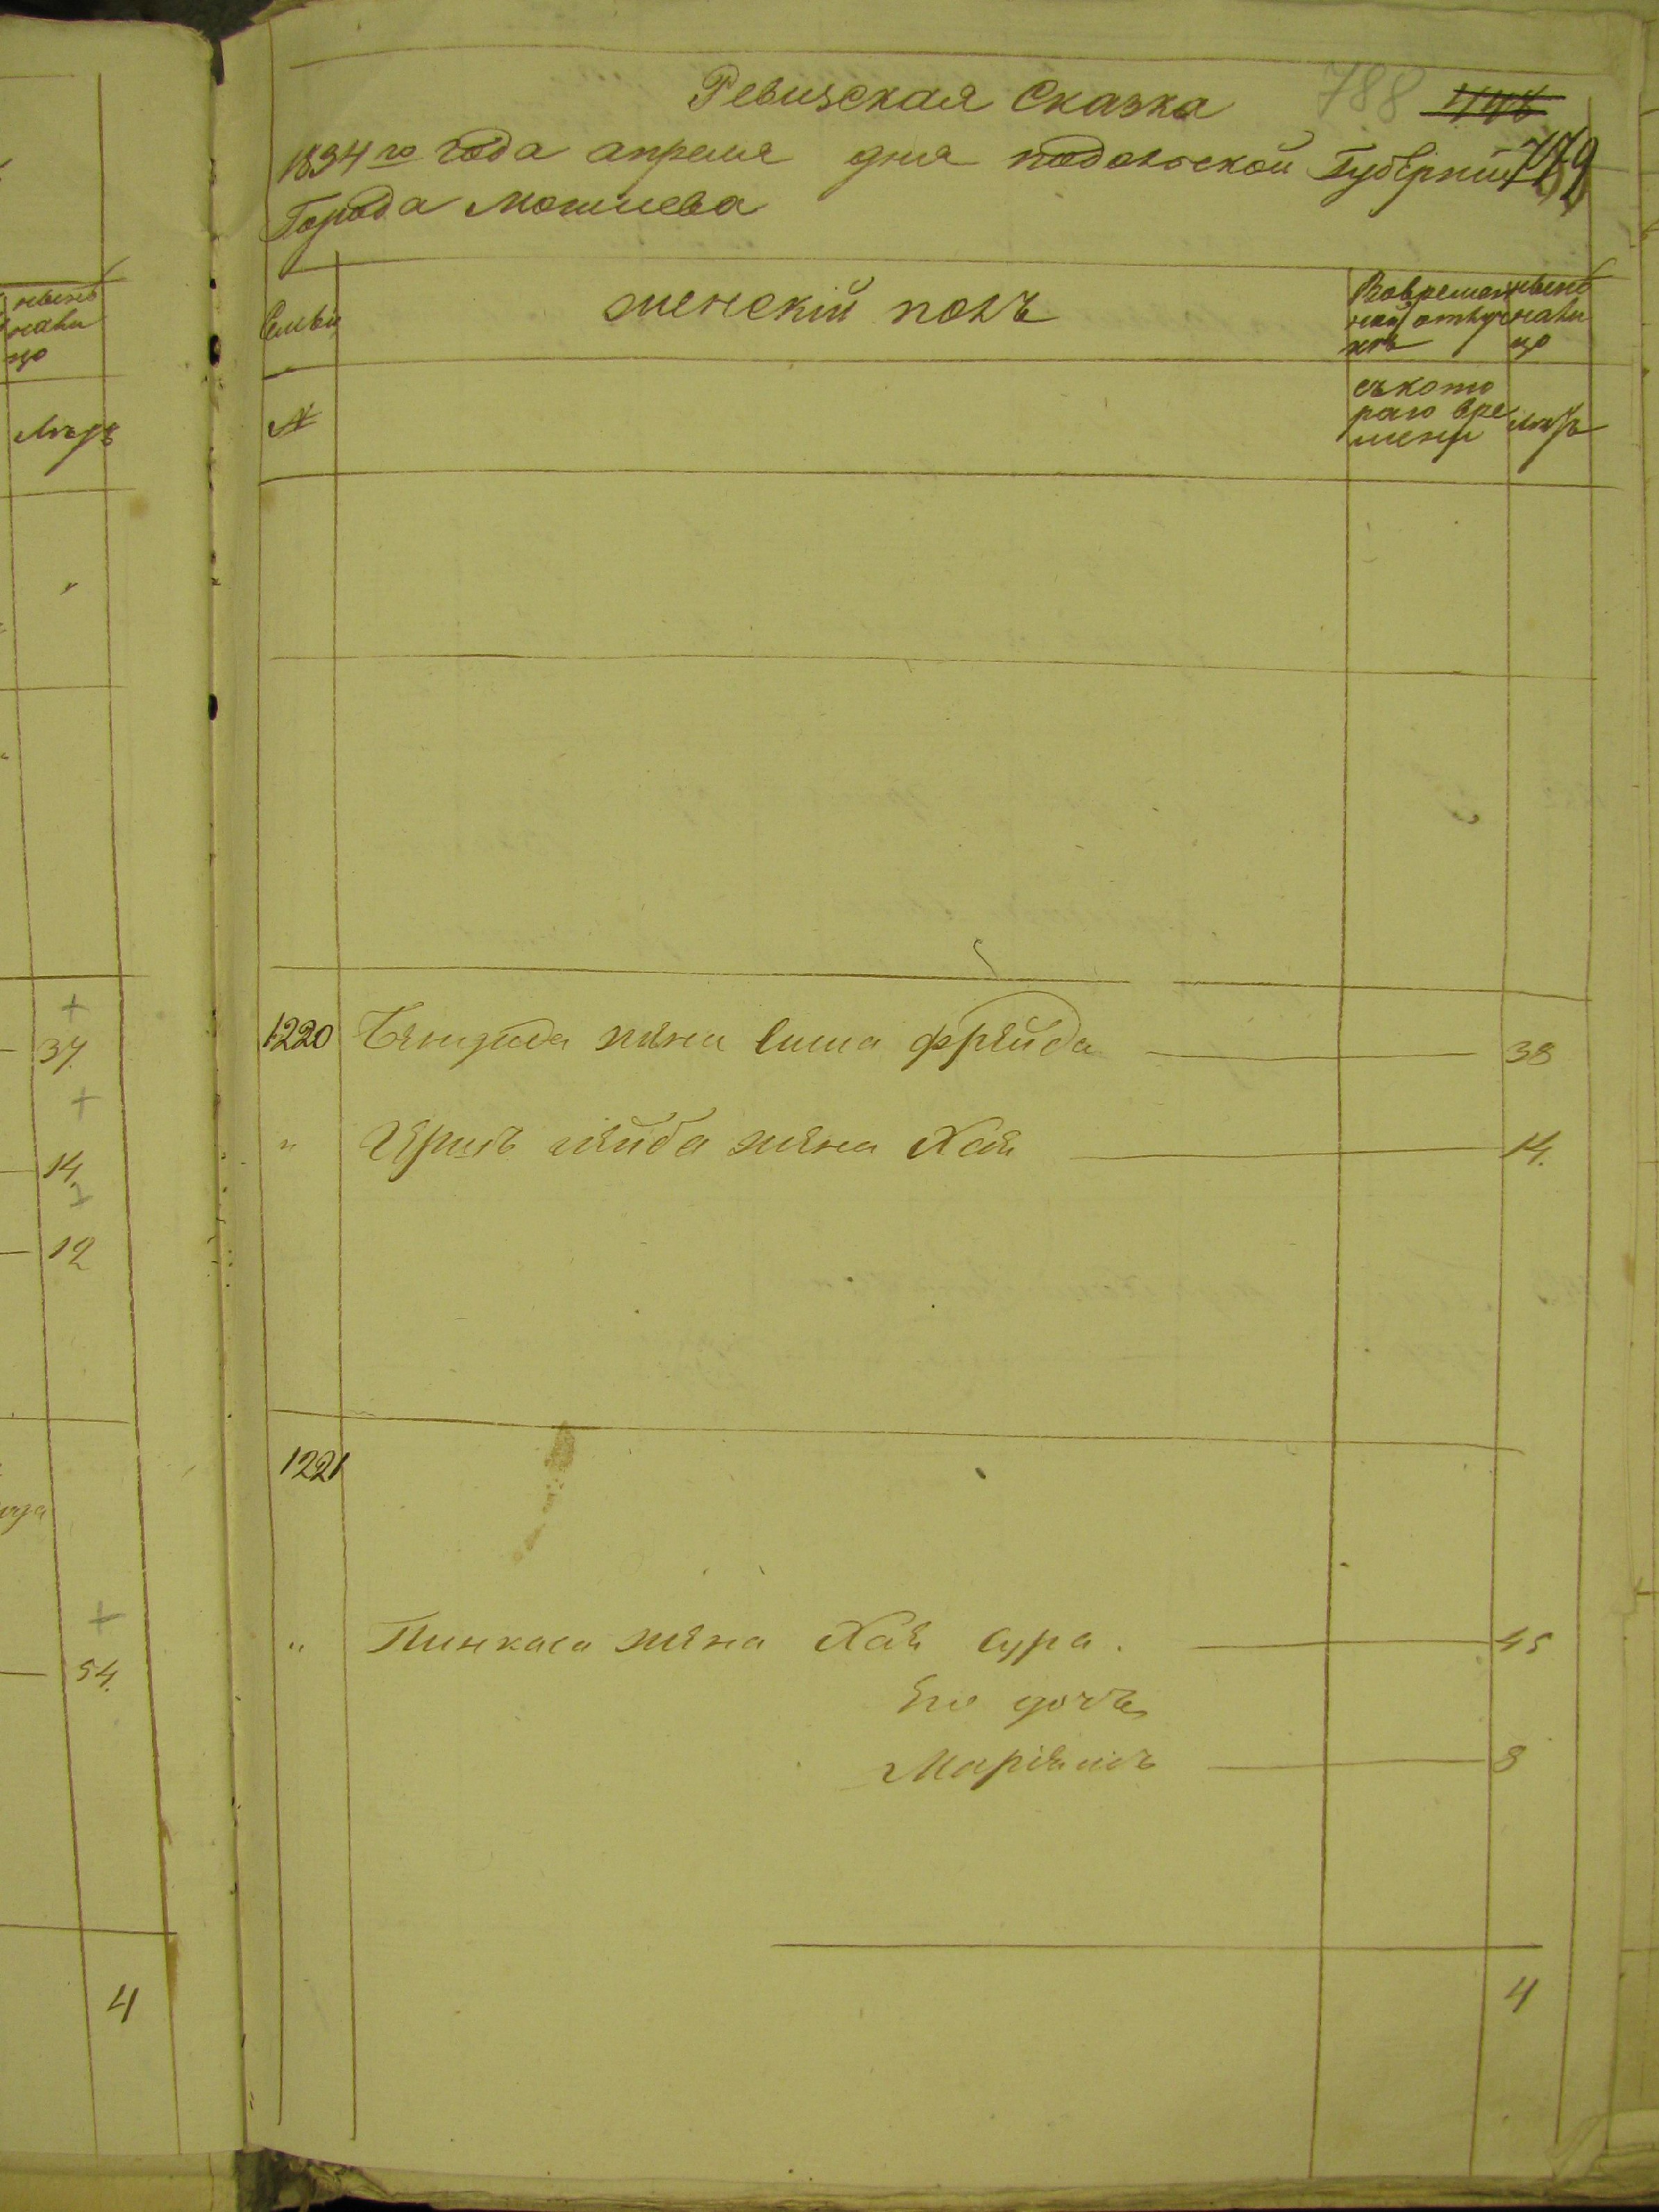 Ревизская Сказка 788
1834 го года апреля дня подольской Губерніи 779
Города Могилева
Семьи
женскій полъ
Вовремен
ной отлуч
кѣ
нынѣ
на ли
цо
№
съ кото
раго вре
мени
лѣтъ
1220 жена Сима фрейда — 38
" Гершъ лейба жена Хая — 14.
1221
" Пинкаса жена Хая сура. — 45
Его дочь
Маріямъ — 8
4
нынѣ
на ли
цо
лѣтъ
+
37
+
14.
12
+
54.
4